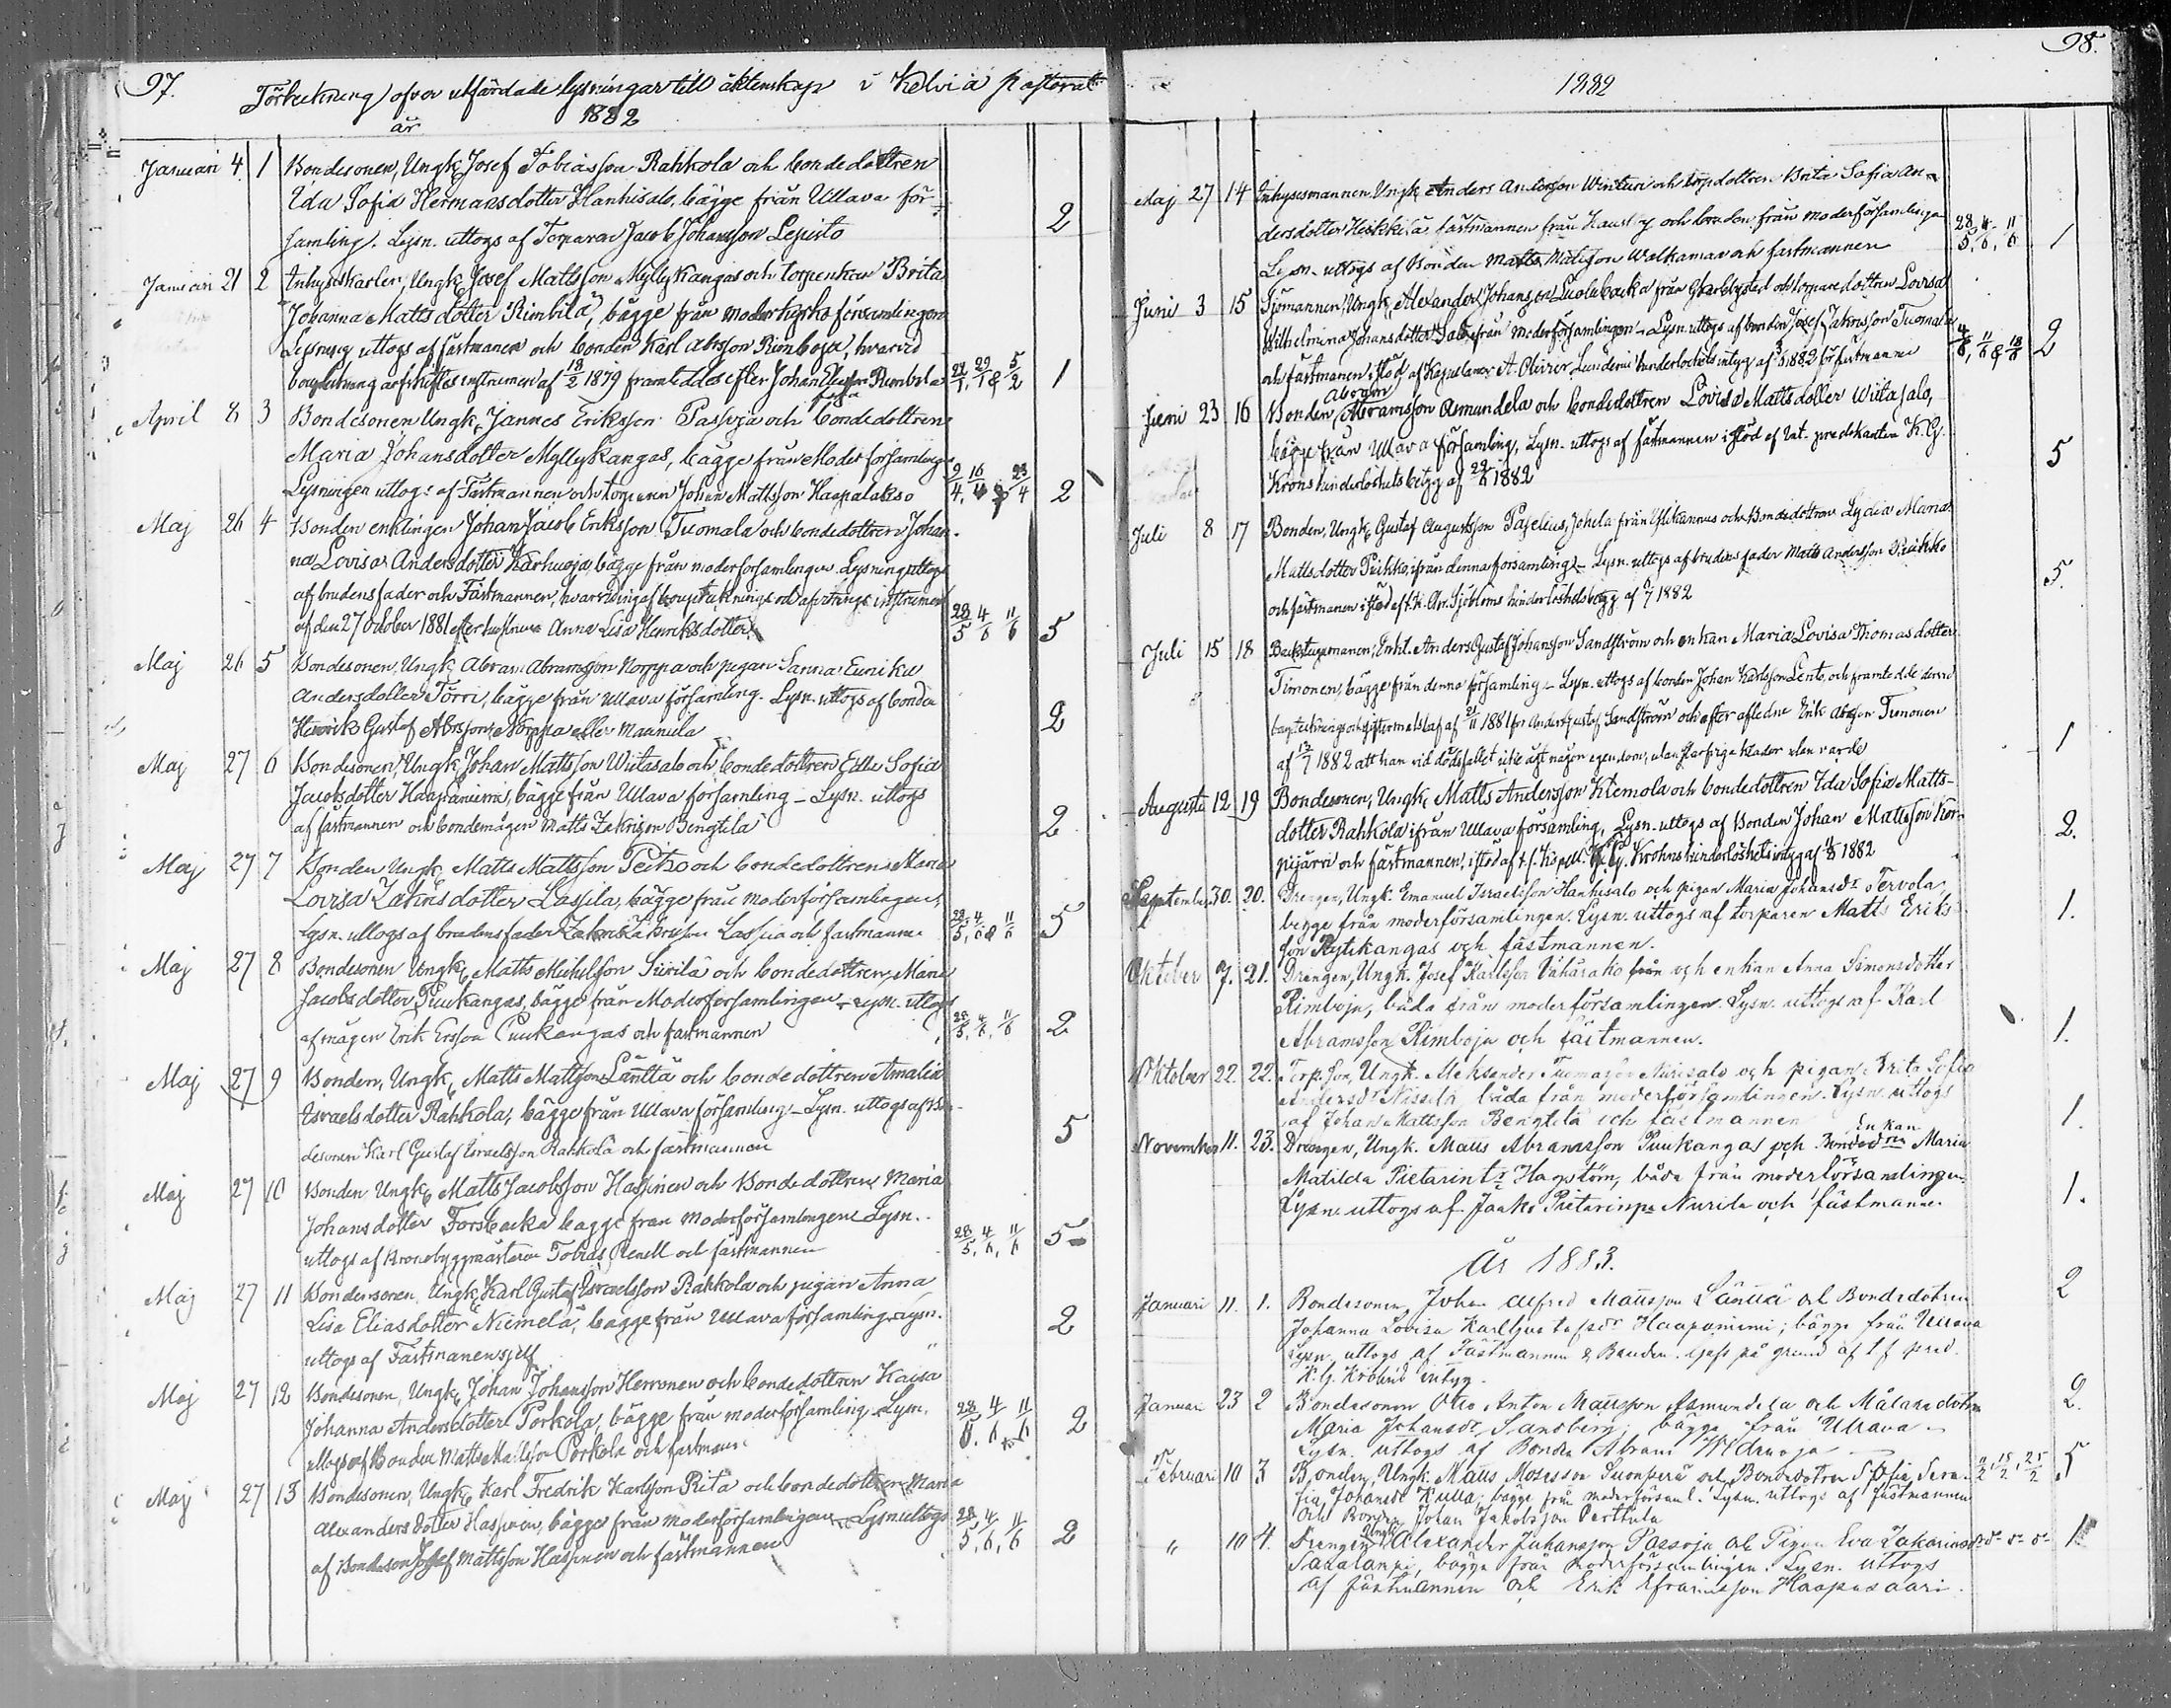 97.
Förteckning öfver utfärdade lysningar till äktenskap i Kelviä pastorat
år 1882
Januari 4. 1 Bondesonen, Ungk. Josef Tobiasson Rahkola och bondedottren
Ida Sofia Hermansdotter Hanhisalo, bägge från Ullava för-
samling. Lysn. uttogs af Torparen Jacob Johansson Lepistö 2
Januari 21 2 Inhyseskarlen, Ungk. Josef Mattsson Myllykangas och torpenkan Brita
Johanna Mattsdotter Rimbilä, bägge från moderkyrko församlingen
Lysning uttogs af fästmannen och bonden Karl Abrsson Rimboja, hvarvid
afskiftes instrument af 18/2 1879 framteddes efter Johan Eliasson Rimbilä 22/1, 29/1 & 5/2 1
April 8 3 Bondesonen Ungk. Jannes Eriksson Passoja och bondedottren
Maria Johansdotter Myllykangas, bägge från Moderförsamlingen
Lysningen uttogs af Fästmannen och torparen Johan Mattsson Haapalakso 9/4, 16/4 & 23/4 2
Maj 26 4 Bonden enklingen Johan Jacob Eriksson Tuomala och bondedottren Johan-
na Lovisa Andersdotter Karhuoja, bägge från moderförsamlingen. Lysning uttogs
af brudens fader och Fästmannen, hvarvid af bouptecknings och afvittrings instrument
af den 27 October 1881 efter hustrun Anna Lisa Henriksdotter 28/5 4/6 11/6 5
Maj 26 5 Bondesonen, Ungk. Abram Abramsson Norppa och pigan Sanna Eunika
Andersdotter Törri, bägge från Ullava församling. Lysn. uttogs af bonden
Henrik Gustaf Abrsson Norppa eller Maunula 2
Maj 27 6 Bondesonen, Ungk. Johan Mattsson Wiitasalo och bondedottren Edla Sofia
Jacobsdotter Haapaniemi, bägge från Ullava församling – Lysn. uttogs
af fästmannen och bondemågen Matts Zakrisson Bengtilä 2
Maj 27 7 Bonden Ungk. Matts Mattsson Peitso och bondedottren Maria
Lovisa Zakrisdotter Lassila, bägge från moderförsamlingen,
Lysn. uttogs af brudens fader Zakris Zakrisson Lassila och fästmannen 28/5, 4/6 & 11/6 5
Maj 27 8 Bondesonen Ungk. Matts Michelsson Siirilä och bondedottren Maria
Jacobsdotter Puukangas, bägge från Moderförsamlingen – Lysn. uttogs
af mågen Erik Ersson Puukangas och fästmannen 28/5, 4/6, 11/6 2
Maj 27 9 Bonden, Ungk. Matts Mattsson Länttä och bondedottren Amalia
Israelsdotter Rahkola, bägge från Ullava församling – Lysn. uttogs af Bon-
desonen Karl Gustaf Israelsson Rahkola och fästmannen 5
Maj 27 10 Bonden Ungk. Matts Jacobsson Haspinen och Bondedottren Maria
Johansdotter Forsbacka bägge från Moderförsamlingen Lysn.
uttogs af Kronobyggmästaren Tobias Renell och fästmannen 28/5, 4/6, 11/6 5
Maj 27 11 Bondesonen Ungk. Karl Gustaf Israelsson Rahkola och pigan Anna
Lisa Eliasdotter Niemelä, bägge från Ullava församling. Lysn.
uttogs af Fästmannen sjelf 2
Maj 27 12 Bondesonen, Ungk. Johan Johansson Herronen och bondedottren Kaisa
Johanna Andersdotter Porkola, bägge från moderförsamling. Lysn.
uttogs af Bonden Matts Mattsson Porkola och fästmannen 28/5, 4/6, 11/6 2
Maj 27 13 Bondesonen, Ungk. Karl Fredrik Karlsson Rita och bondedottren Maria
Alexandersdotter Haspinen, bägge från moderförsamlingen – Lysn. uttogs
af Bondeson Josef Mattsson Haspinen och fästmannen 28/5, 4/6, 11/6 2
98.
1882
Maj 27 14 Inhysesmannen Ungk. Anders Andersson Winturi och torpdottren Brita Sofia An-
dersdotter Heikkilä fästmannen från Kaustby och bruden från moderförsamlingen
Lysn. uttogs af Bonden Matts Mattsson Walkamaa och fästmannen 28/5, 4/6, 11/6 1
Juni 3 15 Sjömannen, Ungk. Alexander Johansson Luolabacka från Gkarleby och torparedottren Lovisa
Wilhelmina Johansdotter Salo från moderförsamlingen – Lysn. uttogs af bonden Josef Zakrisson Tuomala
och fästmannen i stöd af Kapellanen A. Oliver Lundens hinderlöshets intyg af 3/6 1882 för fästmannen 4/6, 11/6 & 18/6 2
Juni 23 16 Bonden, Abram Abramsson Asmundela och bondedottren Lovisa Mattsdotter Wiitasalo,
bägge från Ullava församling, Lysn. uttogs af fästmannen i stöd af Vat. predikanten K. G.
Krons hinderlöshetsbetyg af 22/6 1882 5
Juli 8 17 Bonden, Ungk. Gustaf Augustsson Paselius, Johela från Ylikannus och Bondedottren Lydia Maria
Mattsdotter Puikko, ifrån denna församling – Lysn. uttogs af brudens fader Matts Andersson Puikko
och fästmannen i stöd af v.K. Abr. Sjöbloms hinderlöshetsbetyg af 6/7 1882 5.
Juli 15 18 Backstugumannen, Enkl. Anders Gustaf Johansson Sandström och enkan Maria Lovisa Thomasdotter
Timonen, bägge från denna församling – Lysn. uttogs af bonden Johan Karlsson Lento, och framtedde dervid
bouptecknings och giftermåls lof af 21/11 1881 för Anders Gustaf Sandström och efter aflidne Erik Abrsson Timonen
af 13/7 1882 att han vid dödsfallet icke ägt någon egendom, utan 1
Augusti 12 19 Bondesonen, Ungk. Matts Andersson Klemola och bondedottren Ida Sofia Matts-
dotter Rahkola ifrån Ullava församling, Lysn. uttogs af Bonden Johan Mattsson Kor-
pijärvi och fästmannen, i stöd af t.f. Kapell. K. G. Krohns hinderlöshets intyg af 1882 2.
September 30. 20. Drengen, Ungk. Emanuel Israelsson Hanhisalo och pigan Maria Johansdr Tervola,
begge från moderförsamlingen. Lysn. uttogs af torparen Matts Eriks-
son Rytikangas och fästmannen. 1.
Oktober 7. 21. Drengen, Ungk. Josef Karlsson Vähäraho från och enkan Anna Simonsdotter
Rimboja, båda från moderförsamlingen. Lysn. uttogs af Karl
Abramsson Rimboja och fästmannen. 1.
Oktober 22. 22. Torp.son, Ungk. Aleksander Tuomasson Niirisalo och pigan Brita Sofia
Andersdr Nissilä, båda från moderförsamlingen. Lysn. uttogs
af Johan Mattsson Bengtilä och fästmannen 1.
November 11. 23. Drengen, Ungk. Matts Abramsson Puukangas och enkan Maria
Matilda Pietarintr Hagström, båda från moderförsamlingen.
Lysn. uttogs af Jaako Pietarinpa Nurila och fästmannen 1.
År 1883.
Januari 11. 1. Bondesonen, Johan Alfred Mattsson Länttä och Bondedotren
Johanna Lovisa Karlgustafsdr Haapaniemi; bägge från Ullava
Lysn. uttogs af Fästmannen & Bruden sjelf på grund af t f pred.
K. G. Krohns intyg. 2
Januari 23 2 Bondesonen Otto Anton Mattsson Asmundela och Målaredotren
Maria Johansdr Sandberg, bägge från Ullava –
Lysn. uttogs af Bonden Abram Widnoja 2.
Februari 10 3 Bonden, Ungk. Matts Mosesson Suonperä och Bondedotren Sofia Sera-
fia Johansdr Kulla; bägge från moderförsaml. Lysn. uttogs af fästmannen
och Bonden Johan Jakobsson Perttula 11/2, 18/2, 25/2 5
" 10 4. Drengen Ungk. Alexander Juhansson Passoja och Pigan Eva Zakarias dr
Saxalanpi, bägge från Moderförsamlingen. Lysn. uttogs
af fästmannen och Erik Efraimsson Haapasaari. 1